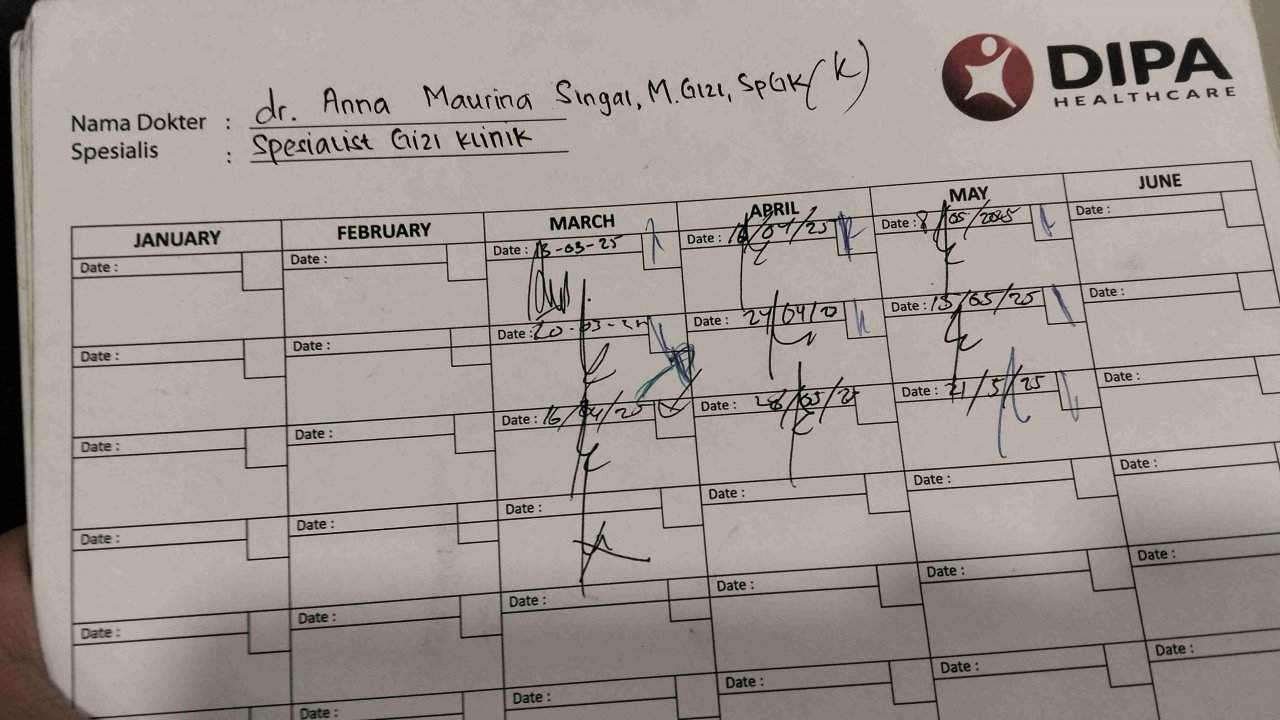 DIPA
HEALTHCARE
Nama Dokter : dr. Anna Maurina Singal, M.Gizi, SpGK(K)
Spesialis : Spesialist Gizi Klinik
JANUARY FEBRUARY MARCH APRIL MAY JUNE
Date : Date : Date : 13-03-25 Date : 16/04/25 Date : 8/05/2025 Date :
Date : Date : Date : 20-03-25 Date : 24/04/2 Date : 15/05/25 Date :
Date : Date : Date : 16/04/25 Date : 28/05/25 Date : 21/5/25 Date :
Date : Date : Date : Date : Date : Date :
Date : Date : Date : Date : Date : Date :
Date : Date : Date : Date : Date :